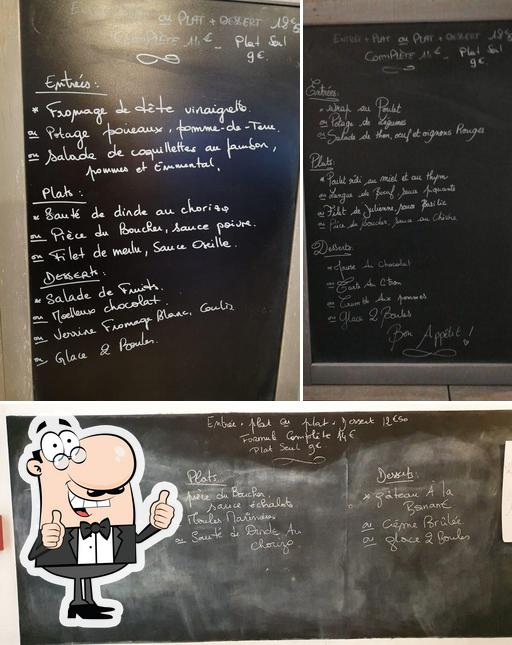 ou PLAT + DESSERT 12€50
COMPLÈTE 14€ - Plat Seul
9€.
Entrées:
* Fromage de tête vinaigrette.
ou Potage poireaux, pomme-de-Terre.
ou Salade de coquillettes au jambon,
pommes et Emmental.
Plats:
* Sauté de dinde au chorizo
ou Pièce du Boucher, sauce poivre.
ou Filet de merlu, Sauce Oseille.
DESSERTS:
* Salade de Fruits.
ou Moelleux chocolat.
ou Verrine Fromage Blanc, Coulis
ou Glace 2 Boules.
ENTRÉE + PLAT ou PLAT + DESSERT 12€50
COMPLÈTE 14€ - Plat Seul
9€.
Entrées:
* Wrap au Poulet
ou Potage de Légumes
ou Salade de thon, oeuf et oignons Rouges
Plats:
* Poulet rôti au miel et au thym
ou Langue de Boeuf sauce piquante
ou Filet de Julienne, sauce Basilic
ou Pièce du boucher, sauce au Chèvre
Desserts:
* au Chocolat
ou Tarte au Citron
ou Crumble aux pommes
ou Glace 2 Boules
Bon Appétit!
Entrée + plat ou plat + Dessert 12€50
Formule Complète 14€
Plat Seul 9€
Plats:
pièce du Boucher
sauce échalote
Moules Marinières
ou Sauté de Dinde Au
chorizo
Desserts:
* gâteau à la
Banane
ou Crème Brûlée
ou glace 2 Boules